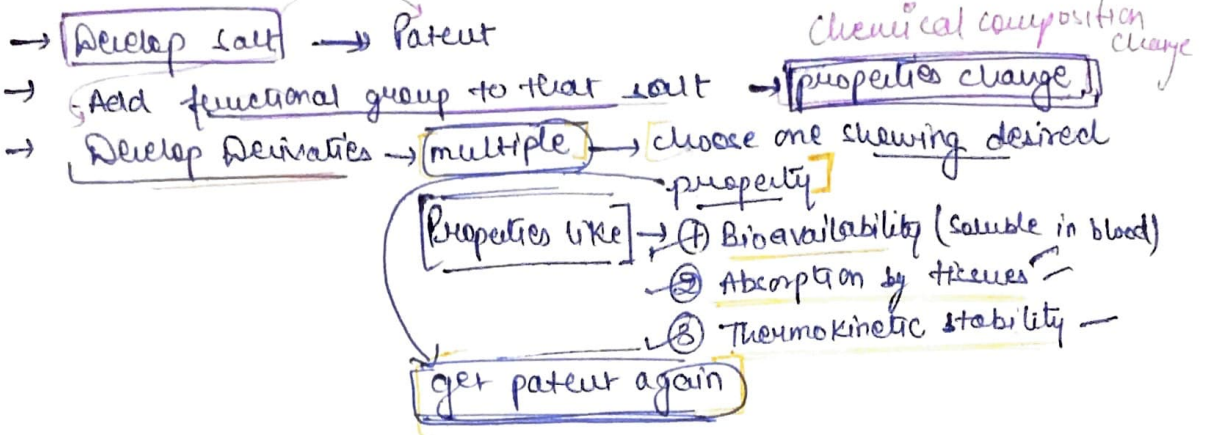 Chemical composition change
→ Develop salt → Patent
→ Add functional group to that salt → properties change
→ Develop Derivaties → multiple → choose one showing desired
property
Properties like → ① Bioavailability (soluble in blood)
② Absorption by tissues
③ Thermokinetic stability —
get patent again